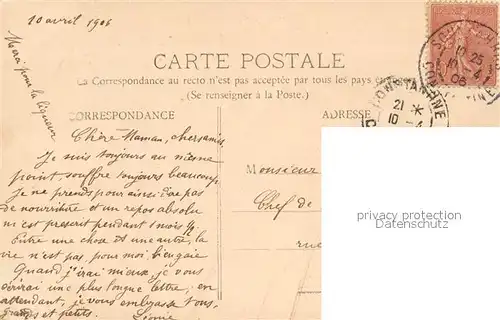 10 avril 1906
Merci pour la liqueur
CARTE POSTALE
La Correspondance au recto n'est pas acceptée par tous les pays
(Se renseigner à la Poste.)
CORRESPONDANCE
ADRESSE
Chère Maman, chers amis,
Je suis toujours au même
point, souffre toujours beaucoup.
Je ne prends pour ainsi dire pas
de nourriture et un repos absolu
m'est prescrit pendant 1 mois ½.
Entre une chose et une autre, la
vie n'est pas, pour moi bien gaie
Quand j'irai mieux, je vous
écrirai une plus longue lettre; en
attendant, je vous embrasse tous,
grands et petits.
Léonie
Monsieur
Chef de
rue
CONSTANTINE
21 *
10 - 4
10 25
10 4
06
privacy protection
Datenschutz